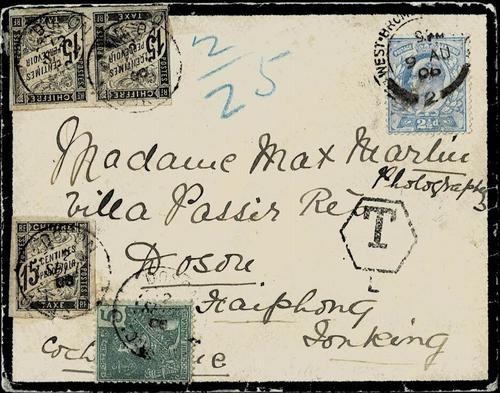 15 CENTIMES A PERCEVOIR
CHIFFRE TAXE
15 CENTIMES A PERCEVOIR
CHIFFRE TAXE
2/25
WEST-BROM
9 AU
06
2
2½d
Madame Max Martin
Photography
Villa Passir
Doson
T
Haiphong
Tonking
15 CENTIMES A PERCEVOIR
CHIFFRE TAXE POSTES
5